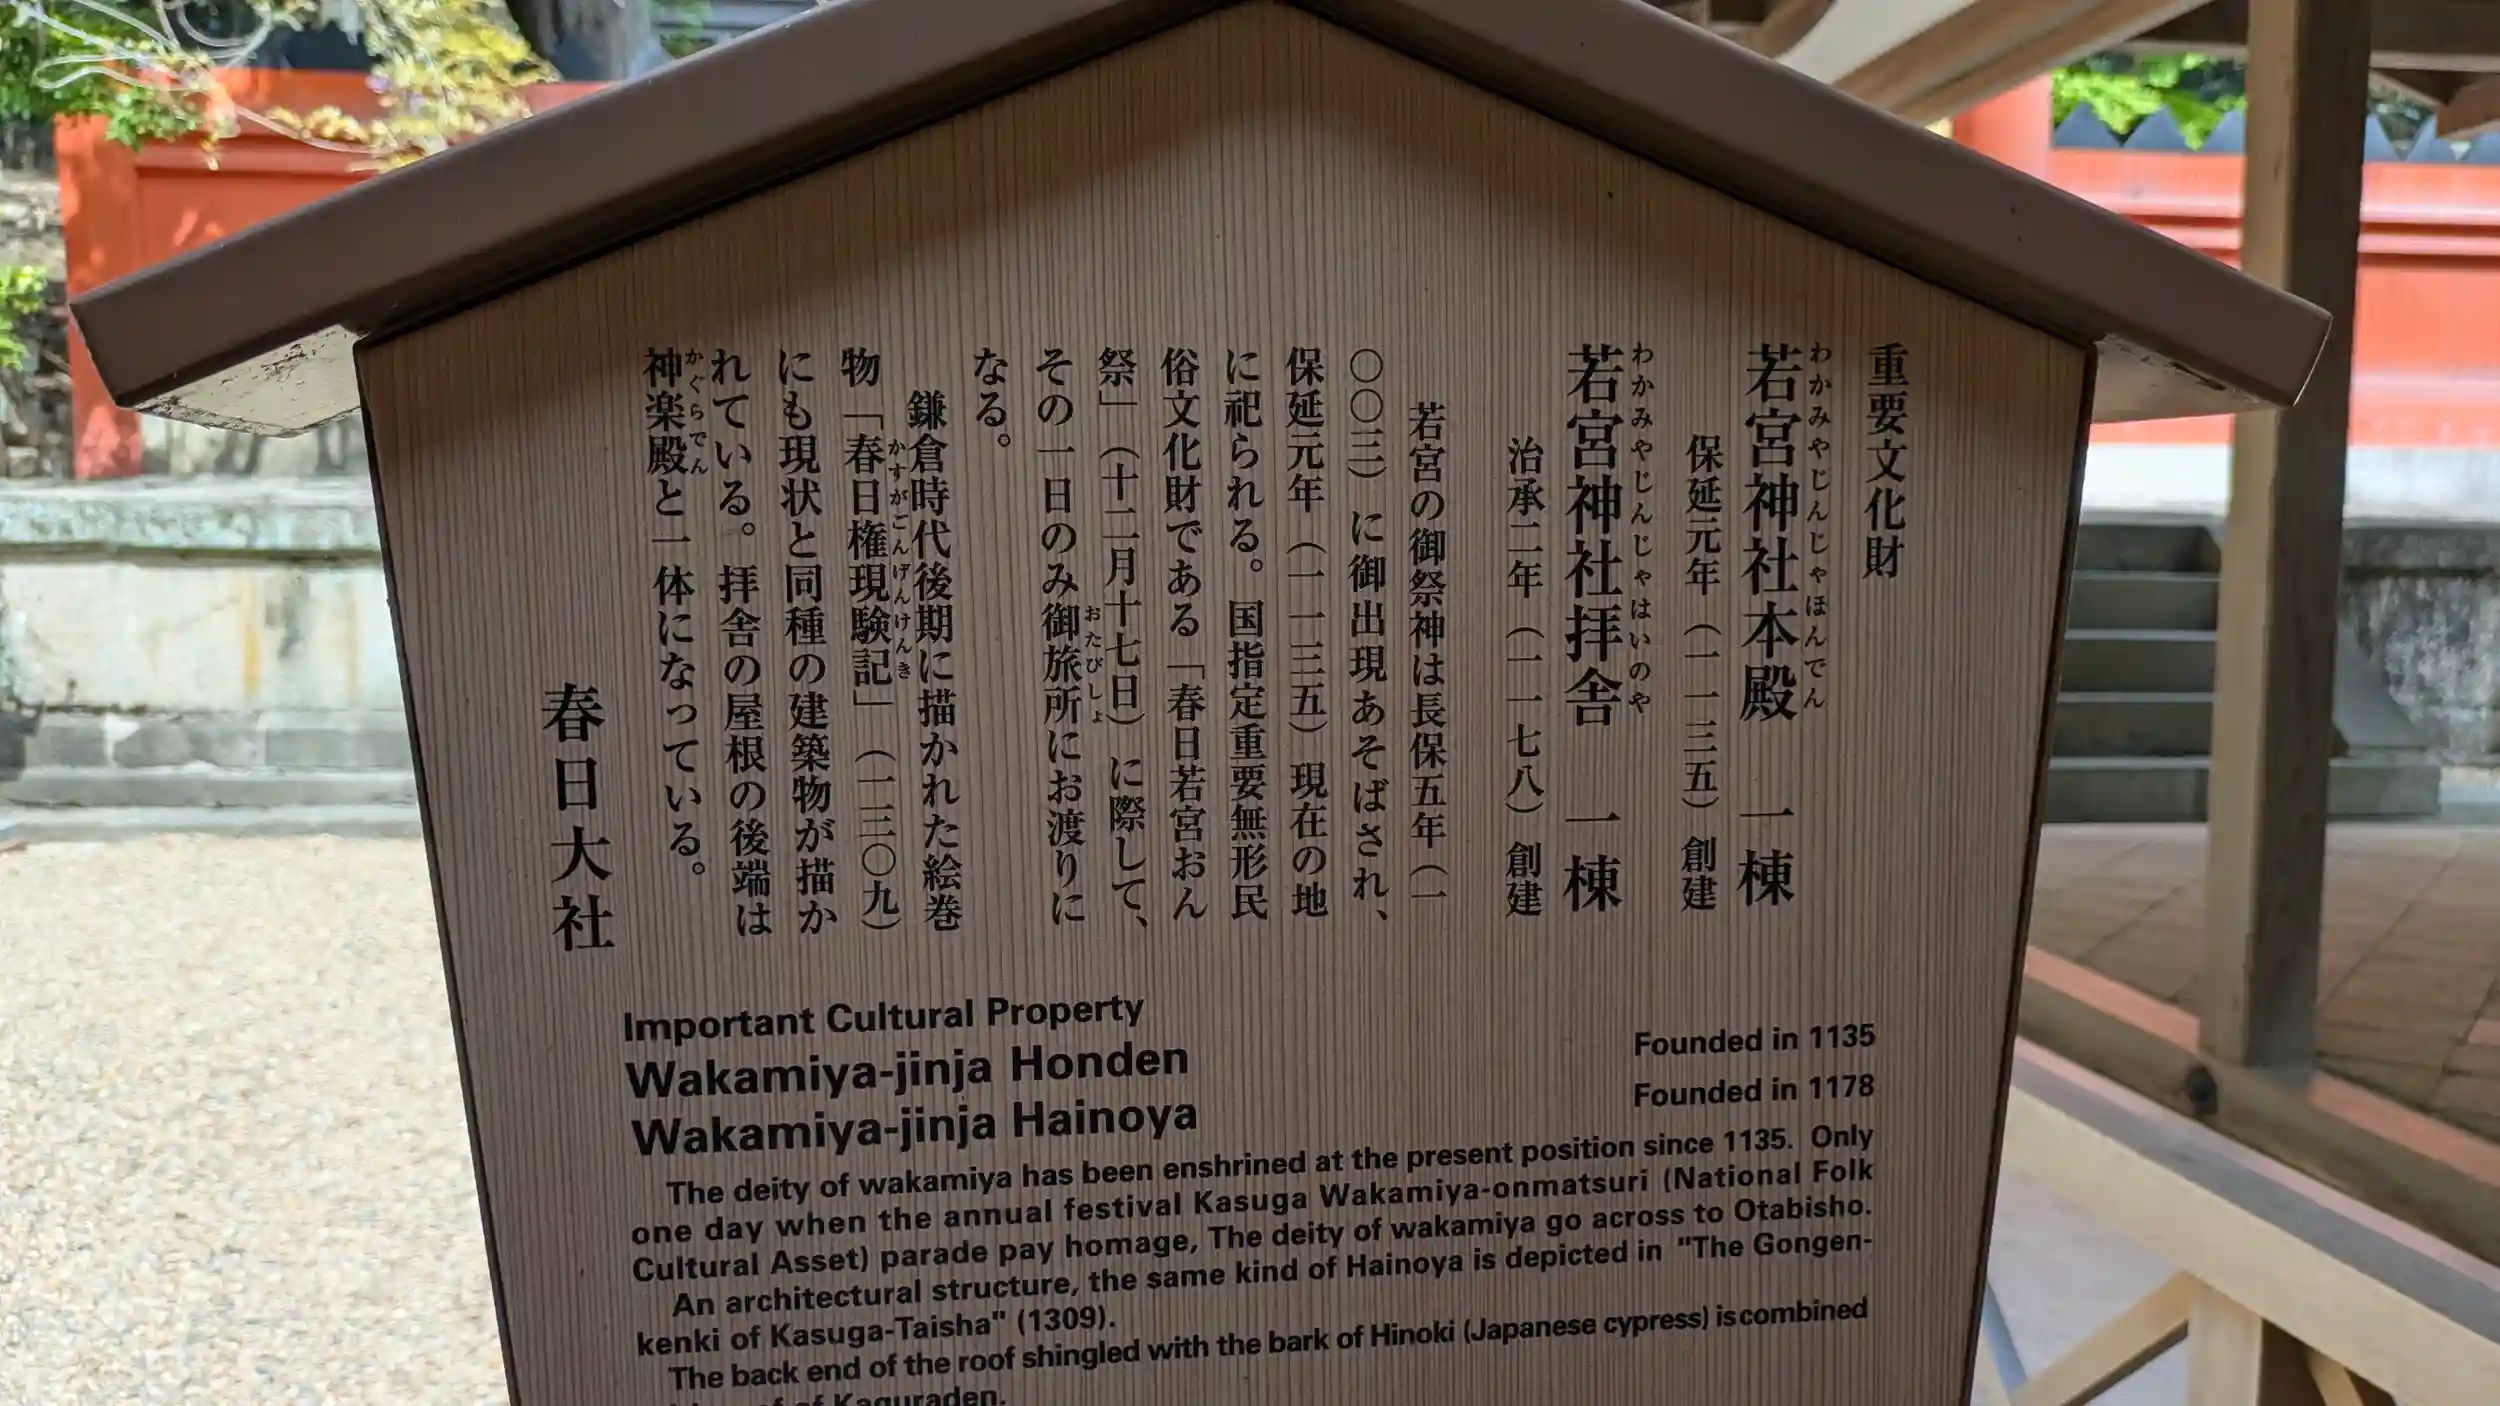 重要文化財
若宮神社本殿 一棟
わかみやじんじゃほんでん
保延元年（一一三五）創建
若宮神社拝舎 一棟
わかみやじんじゃはいのや
治承二年（一一七八）創建
若宮の御祭神は長保五年（一
〇〇三）に御出現あそばされ、
保延元年（一一三五）現在の地
に祀られる。国指定重要無形民
俗文化財である「春日若宮おん
祭」（十二月十七日）に際して、
その一日のみ御旅所にお渡りに
おたびしょ
なる。
鎌倉時代後期に描かれた絵巻
物「春日権現験記」（一三〇九）
かすがごんげんけんき
にも現状と同種の建築物が描か
れている。拝舎の屋根の後端は
神楽殿と一体になっている。
かぐらでん
春日大社
Important Cultural Property
Wakamiya-jinja Honden Founded in 1135
Wakamiya-jinja Hainoya Founded in 1178
The deity of wakamiya has been enshrined at the present position since 1135. Only
one day when the annual festival Kasuga Wakamiya-onmatsuri (National Folk
Cultural Asset) parade pay homage, The deity of wakamiya go across to Otabisho.
An architectural structure, the same kind of Hainoya is depicted in "The Gongen-
kenki of Kasuga-Taisha" (1309).
The back end of the roof shingled with the bark of Hinoki (Japanese cypress) is combined
of Kaguraden.